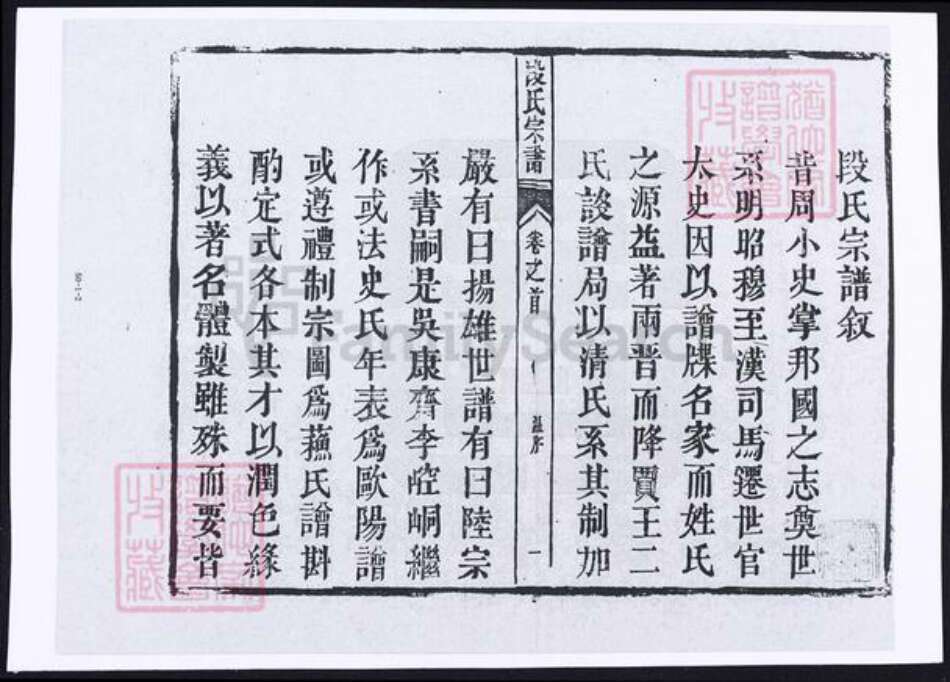 段氏宗譜敘
昔周小史掌邦國之志奠世
系明昭穆至漢司馬遷世官
太史因以譜牒名家而姓氏
之源益著兩晉而降賈王二
氏談譜局以清氏系其制加
段氏宗譜 卷之首 一
嚴有曰揚雄世譜有曰陸宗
系書嗣是吳康齊李崆峒繼
作或法史氏年表為歐陽譜
或遵禮制宗圖為蘓氏譜斟
酌定式各本其才以潤色緣
義以著名體製雖殊而要皆
FamilySearch